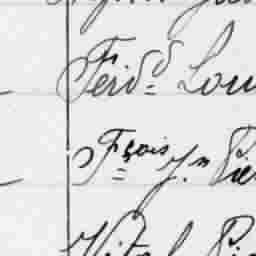 Ferdd Lou
Fçois Jn Pie
Vital Pi